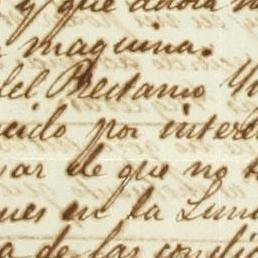 y que ahora
maquina.
del Prestamo
cido por inter
sar de que no t
ues en la Luna
a de las condic